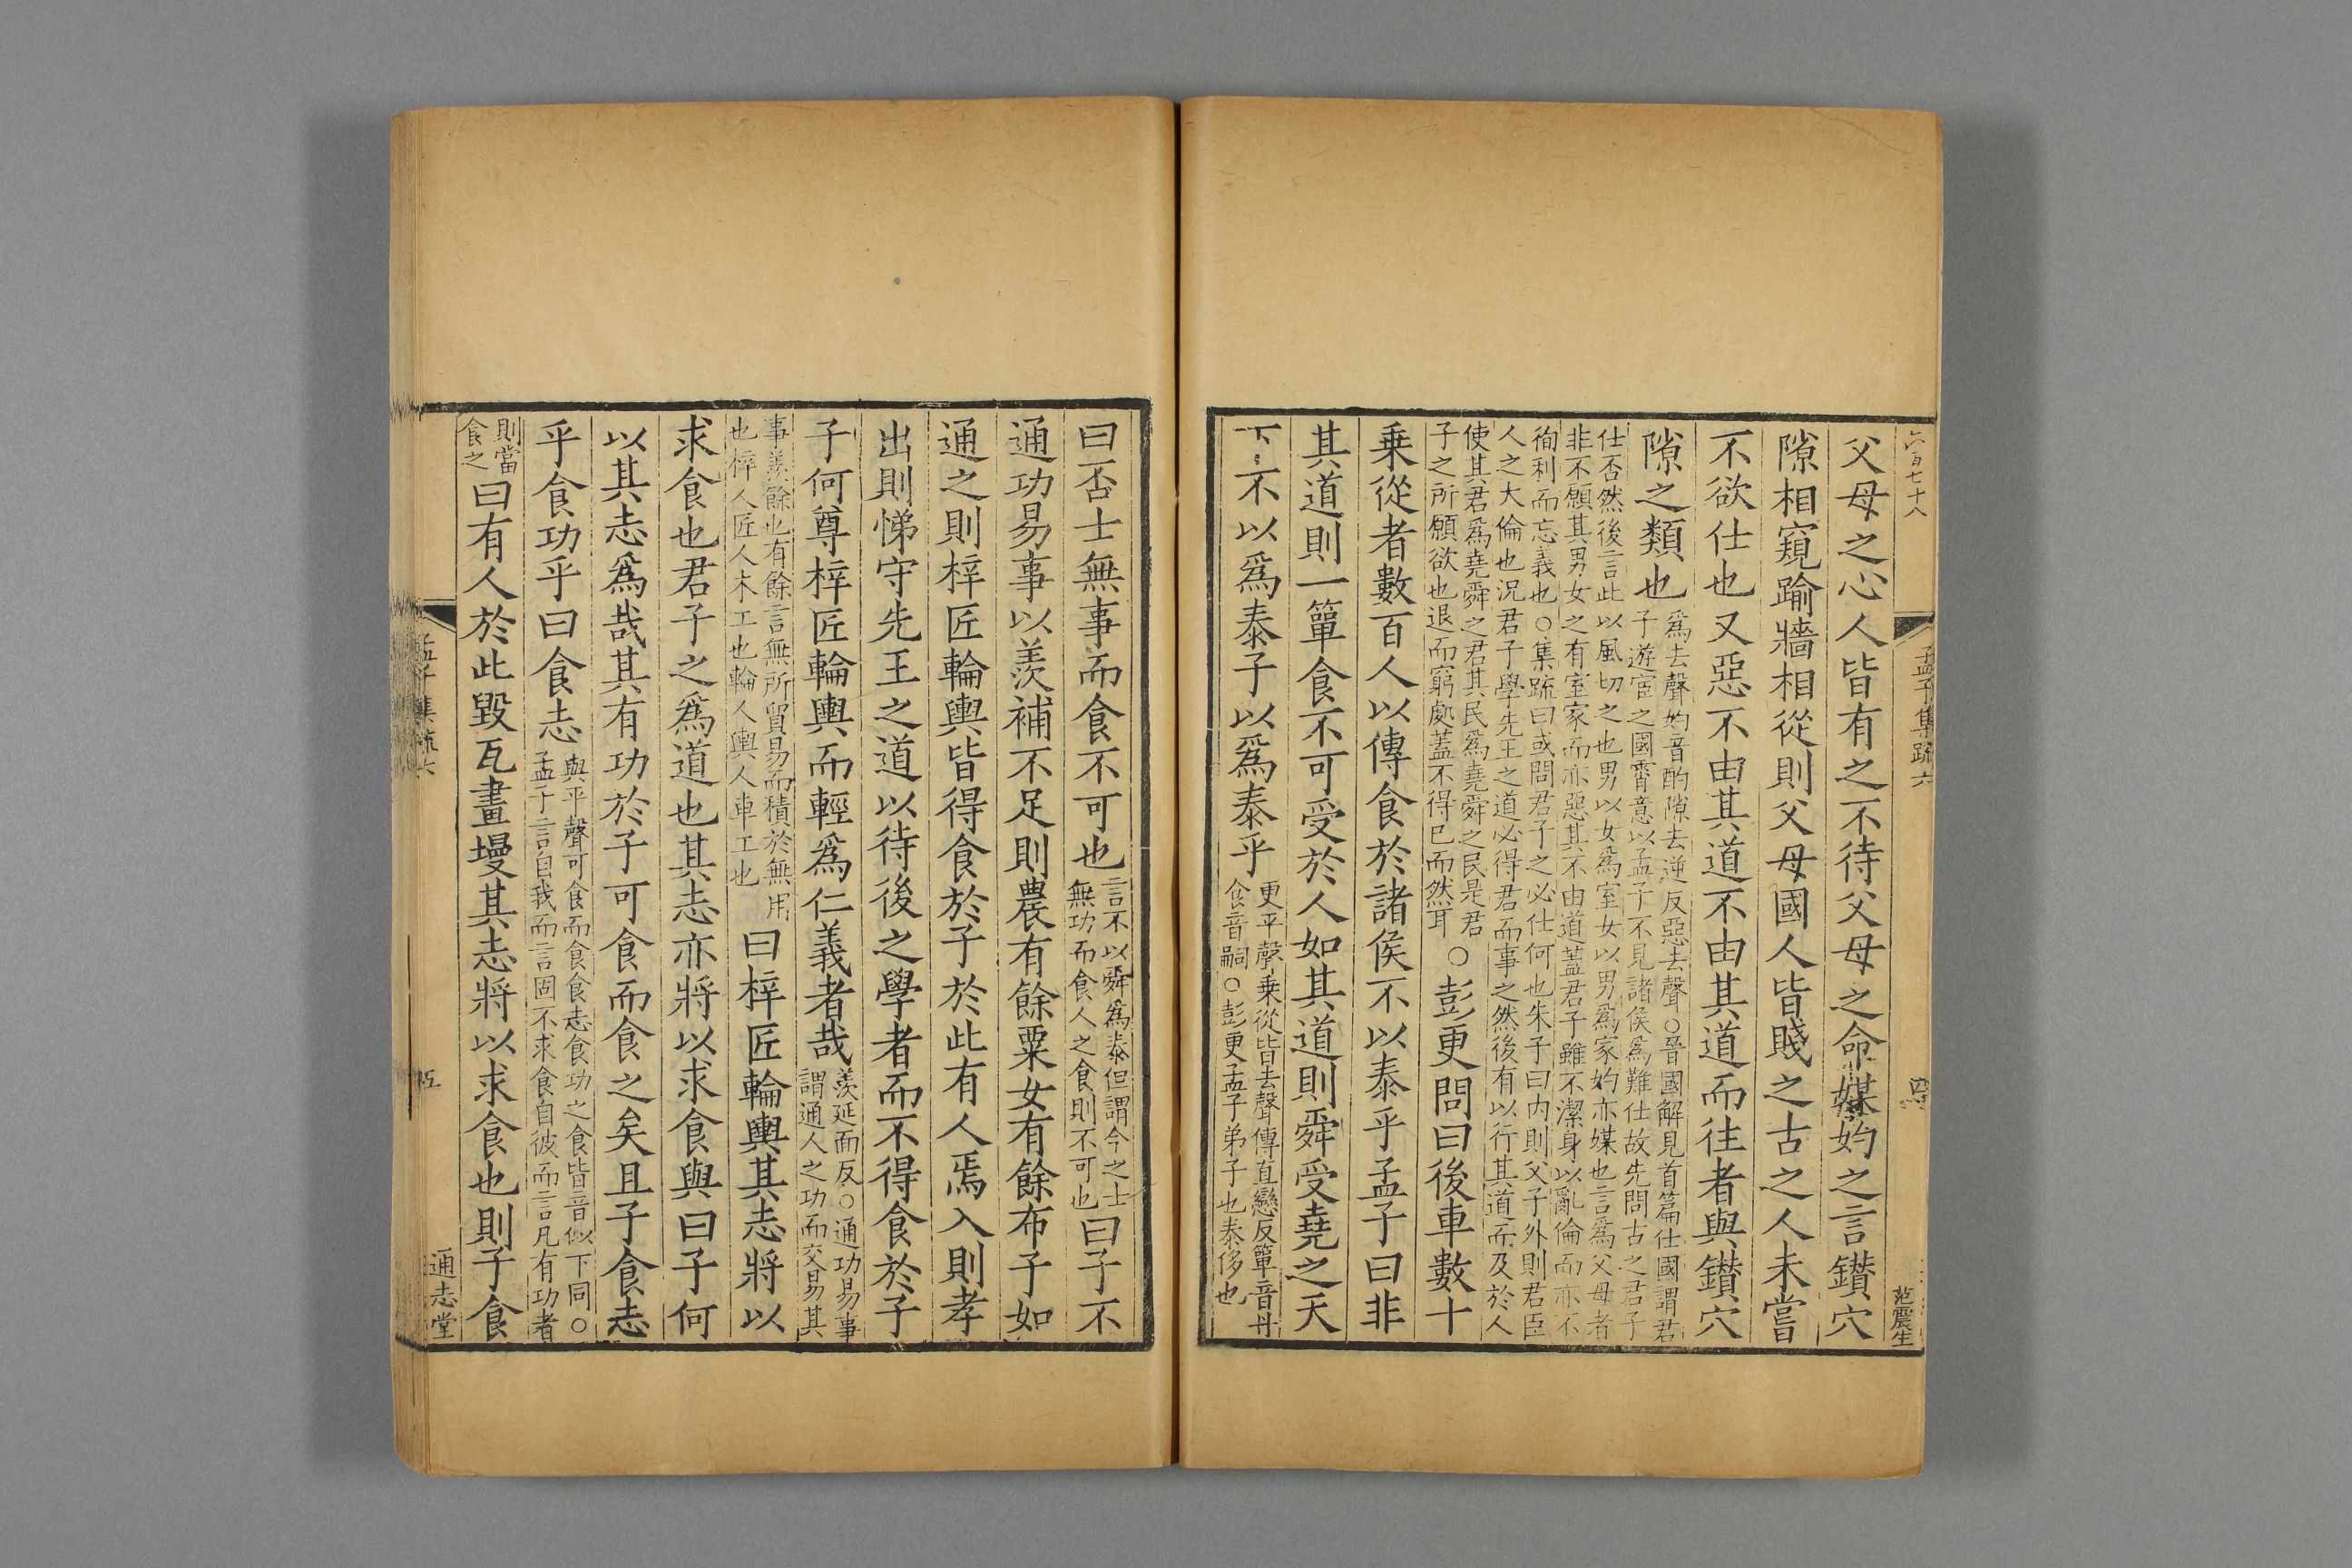 六百七十八
孟子集疏六
四
范震生
父母之心人皆有之不待父母之命媒妁之言鑚穴
隙相窺踰牆相從則父母國人皆賤之古之人未嘗
不欲仕也又惡不由其道不由其道而往者與鑚穴
隙之類也
爲去聲妁音酌隙去逆反惡去聲○晉國解見首篇仕國謂君
子遊宦之國霄意以孟子不見諸侯爲難仕故先問古之君子
仕否然後言此以風切之也男以女爲室女以男爲家妁亦媒也言爲父母者
非不願其男女之有室家而亦惡其不由道蓋君子雖不潔身以亂倫而亦不
徇利而忘義也○集疏曰或問君子之必仕何也朱子曰内則父子外則君臣
人之大倫也況君子學先王之道必得君而事之然後有以行其道而及於人
使其君爲堯舜之君其民爲堯舜之民是君
子之所願欲也退而窮處蓋不得已而然耳
○彭更問曰後車數十
乗從者數百人以傳食於諸侯不以泰乎孟子曰非
其道則一簞食不可受於人如其道則舜受堯之天
下不以爲泰子以爲泰乎
更平聲乗從皆去聲傳直戀反簞音丹
食音嗣○彭更孟子弟子也泰侈也
曰否士無事而食不可也
言不以舜爲泰但謂今之士
無功而食人之食則不可也
曰子不
通功易事以羨補不足則農有餘粟女有餘布子如
通之則梓匠輪輿皆得食於子於此有人焉入則孝
出則悌守先王之道以待後之學者而不得食於子
子何尊梓匠輪輿而輕爲仁義者哉
羨延面反○通功易事
謂通人之功而交易其
事羨餘也有餘言無所貿易而積於無用
也梓人匠人木工也輪人輿人車工也
曰梓匠輪輿其志將以
求食也君子之爲道也其志亦將以求食與曰子何
以其志爲哉其有功於子可食而食之矣且子食志
乎食功乎曰食志
與平聲可食而食食志食功之食皆音似下同○
孟子言自我而言固不求食自彼而言凡有功者
則當
食之
曰有人於此毀瓦畫墁其志將以求食也則子食
孟子集疏六
五
通志堂